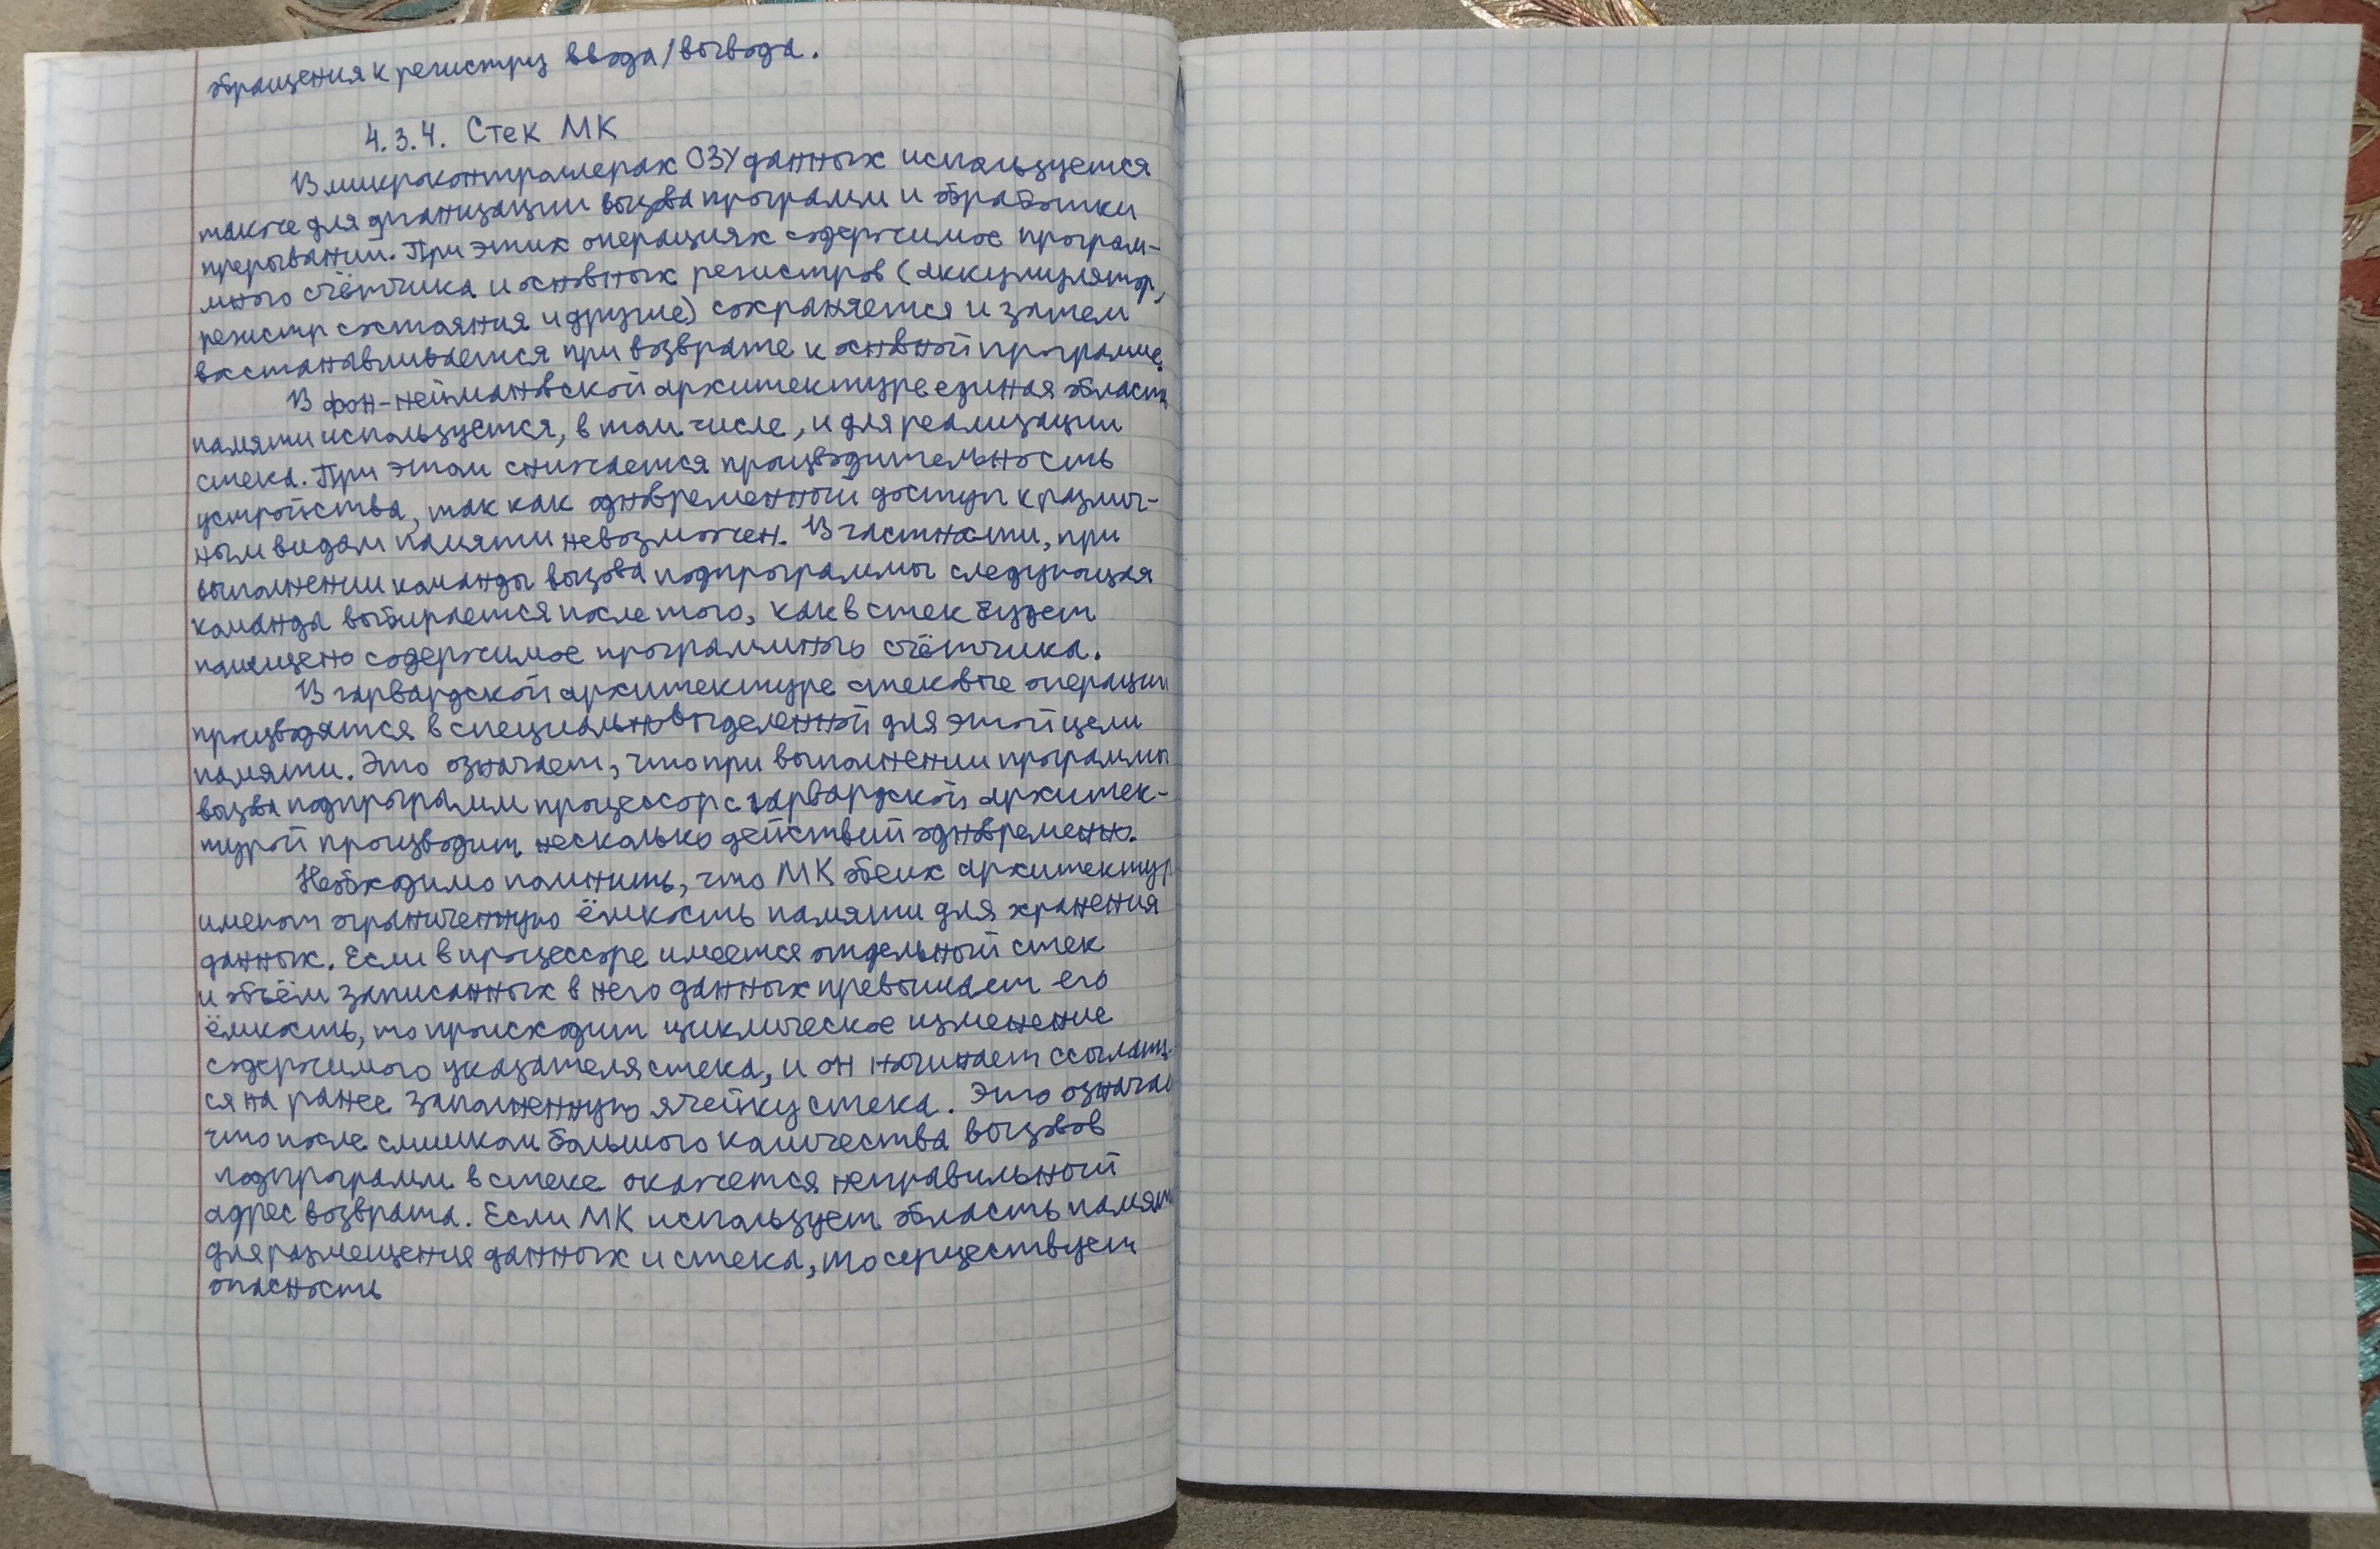 обращения к регистру ввода/вывода.
4.3.4. Стек МК
В микроконтроллерах ОЗУ данных используется
также для организации вызова программ и обработки
прерываний. При этих операциях содержимое програм-
много счётчика и основных регистров (аккумулятор,
регистр состояния и другие) сохраняется и затем
восстанавливается при возврате к основной программе.
В фон-неймановской архитектуре единая область
памяти используется, в том числе, и для реализации
стека. При этом снижается производительность
устройства, так как одновременный доступ к различ-
ным видам памяти невозможен. В частности, при
выполнении команды вызова подпрограммы следующая
команда выбирается после того, как в стек будет
помещено содержимое программного счётчика.
В гарвардской архитектуре стековые операции
производятся в специально выделенной для этой цели
памяти. Это означает, что при выполнении программы
вызова подпрограмм процессор с гарвардской архитек-
турой производит несколько действий одновременно.
Необходимо помнить, что МК обеих архитектур
имеют ограниченную ёмкость памяти для хранения
данных. Если в процессоре имеется отдельный стек
и объём записанных в него данных превышает его
ёмкость, то происходит циклическое изменение
содержимого указателя стека, и он начинает ссылать-
ся на ранее заполненную ячейку стека. Это означае
что после слишком большого количества вызовов
подпрограмм в стеке окажется неправильный
адрес возврата. Если МК использует область памяти
для размещения данных и стека, то существует
опасность